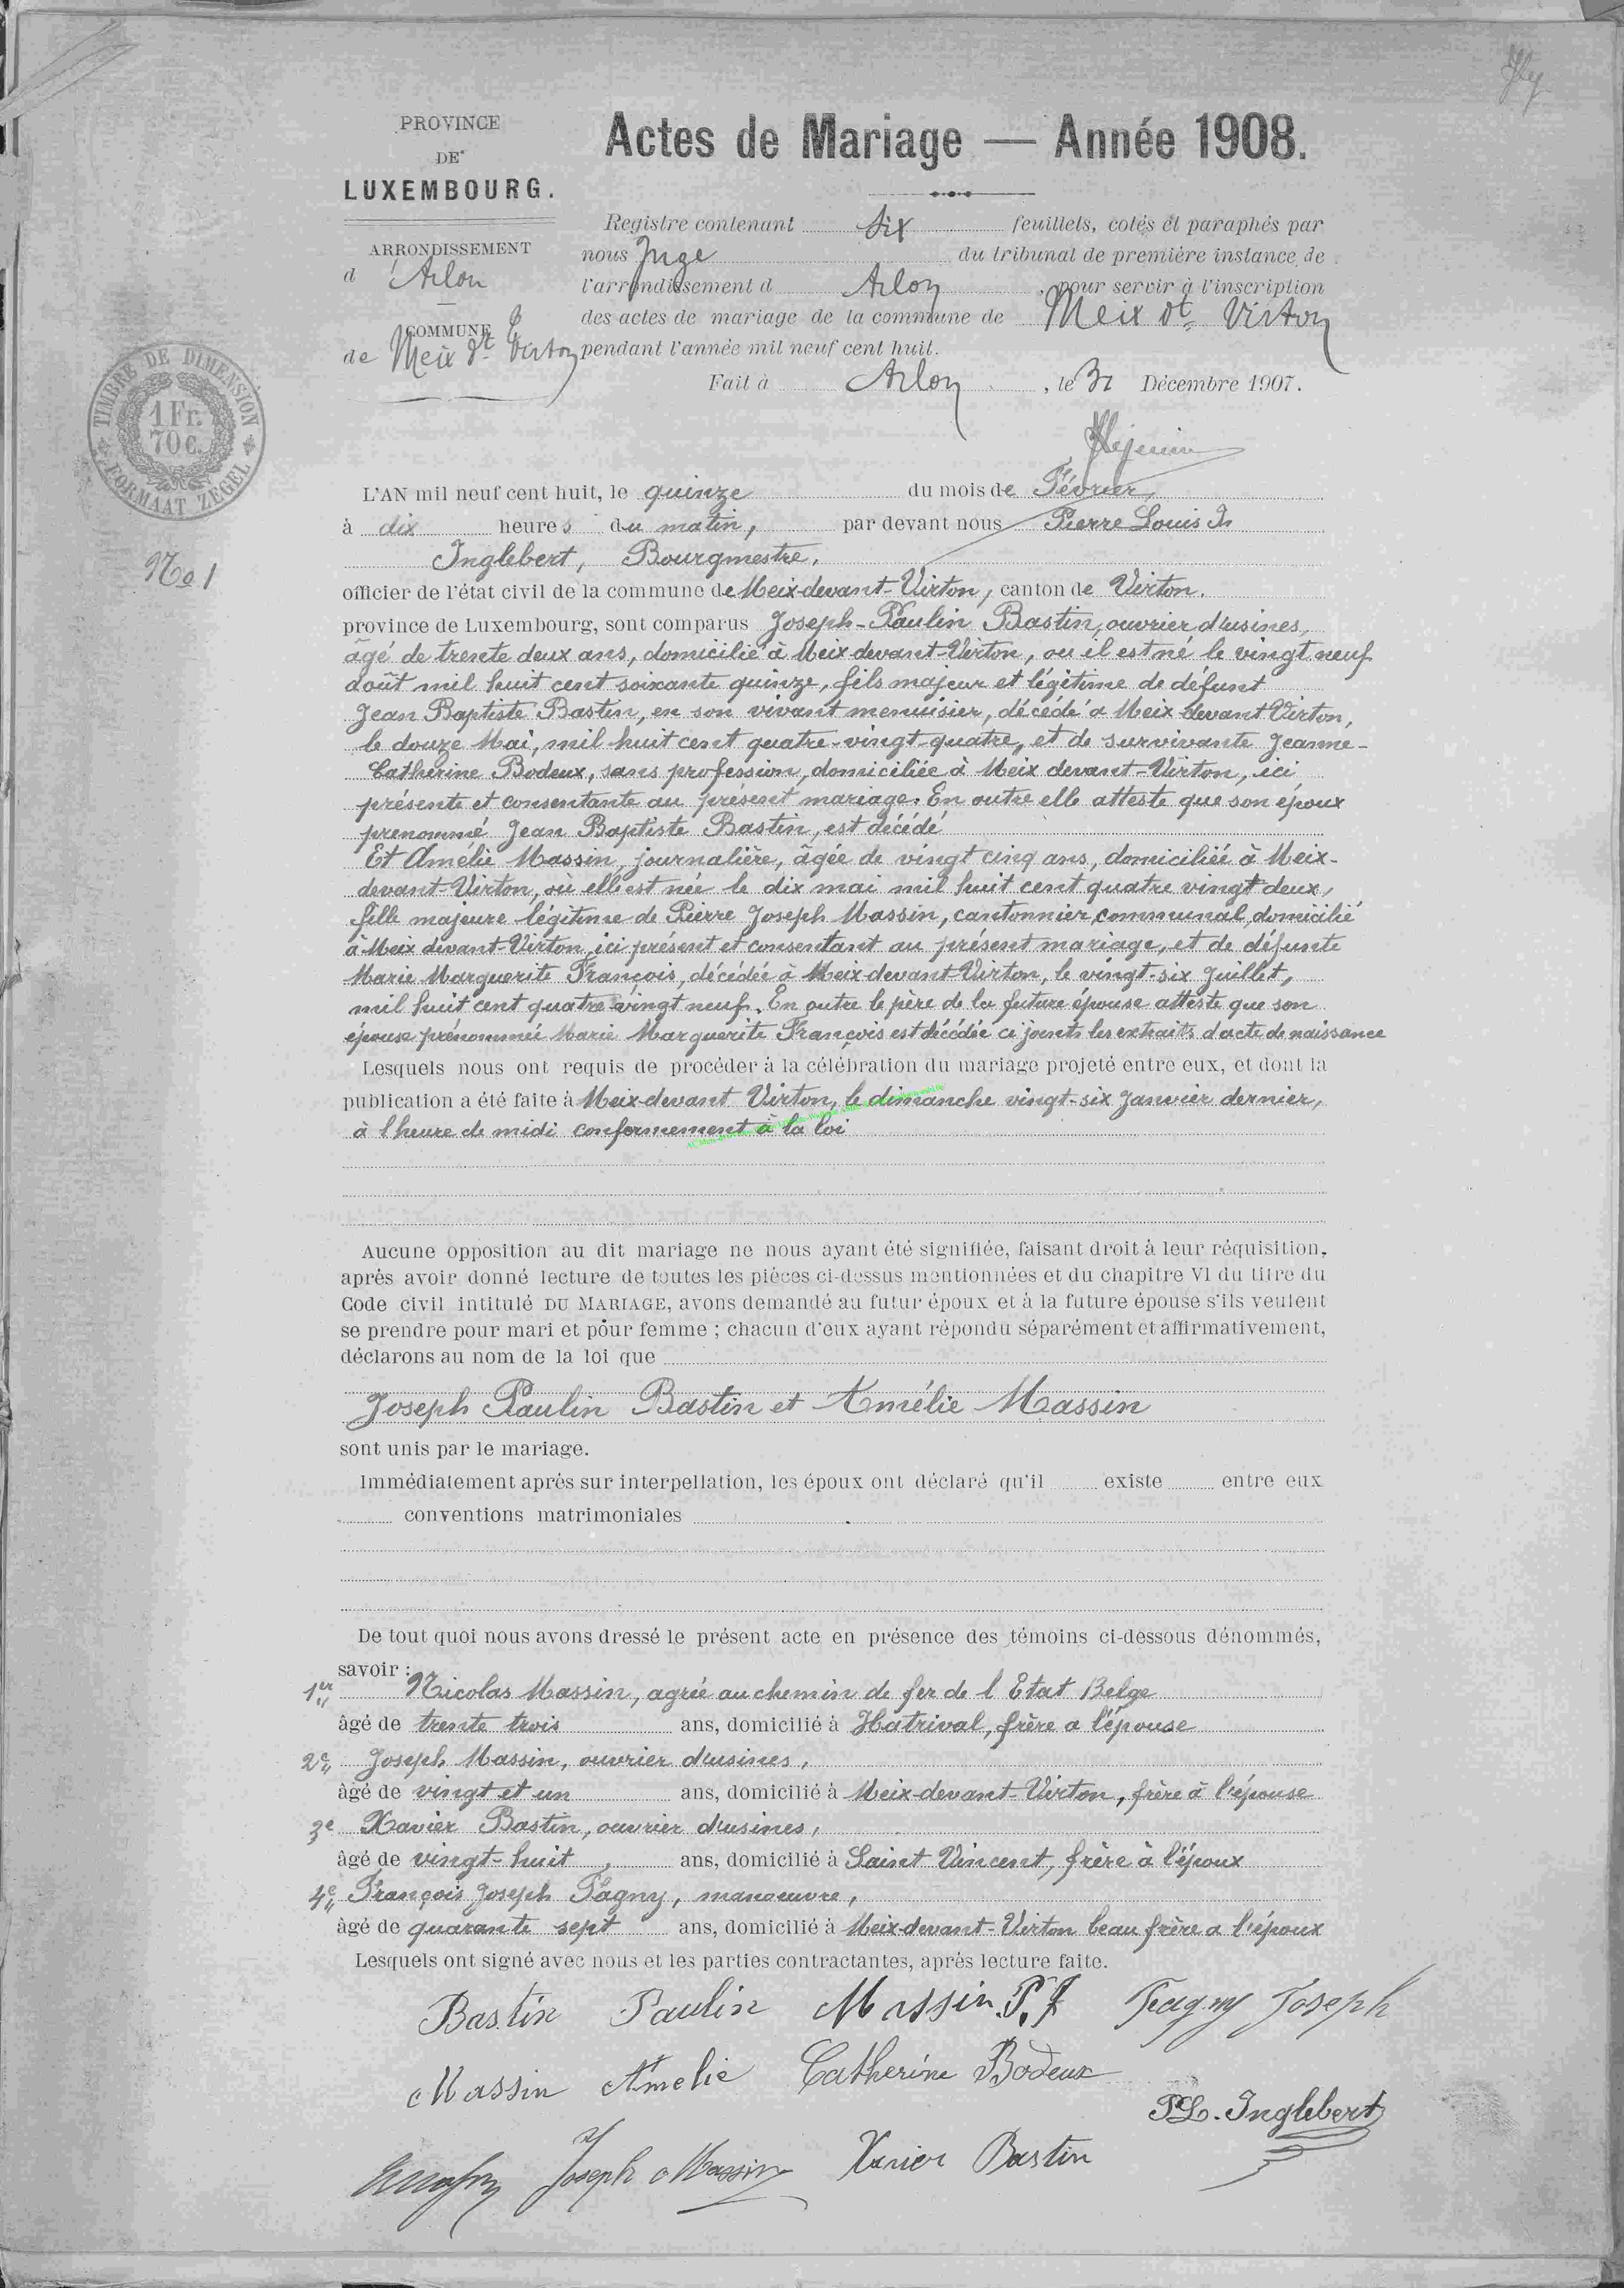 PROVINCE
DE
LUXEMBOURG.
ARRONDISSEMENT
d'Arlon
COMMUNE
de Meix dt Virton
Actes de Mariage — Année 1908.
Registre contenant six feuillets, cotés et paraphés par
nous Juge du tribunal de première instance de
l'arrondissement d Arlon, pour servir à l'inscription
des actes de mariage de la commune de Meix dt Virton
pendant l'année mil neuf cent huit.
Fait à Arlon, le 31 Décembre 1907.
TIMBRE DE DIMENSION
1 Fr.
70 c.
FORMAAT ZEGEL
No 1
L'AN mil neuf cent huit, le quinze du mois de Février
à dix heures du matin, par devant nous Pierre Louis
Inglebert, Bourgmestre,
officier de l'état civil de la commune de Meix-devant-Virton, canton de Virton,
province de Luxembourg, sont comparus Joseph-Paulin Bastin, ouvrier d'usines,
âgé de trente deux ans, domicilié à Meix devant-Virton, où il est né le vingt neuf
août mil huit cent soixante quinze, fils majeur et légitime de défunt
Jean Baptiste Bastin, en son vivant menuisier, décédé à Meix devant Virton,
le douze Mai, mil huit cent quatre-vingt-quatre, et de survivante Jeanne-
Catherine Bodeux, sans profession, domiciliée à Meix devant-Virton, ici
présente et consentante au présent mariage. En outre elle atteste que son époux
prenommé Jean Baptiste Bastin, est décédé
Et Amélie Massin, journalière, âgée de vingt cinq ans, domiciliée à Meix-
devant-Virton, où elle est née le dix mai mil huit cent quatre vingt deux,
fille majeure légitime de Pierre Joseph Massin, cantonnier communal, domicilié
à Meix devant-Virton, ici présent et consentant au présent mariage, et de défunte
Marie Marguerite François, décédée à Meix-devant-Virton, le vingt-six Juillet,
mil huit cent quatre vingt neuf. En outre le père de la future épouse atteste que son
épouse prénommée Marie Marguerite François est décédée ci joints les extraits d'acte de naissance
Lesquels nous ont requis de procéder à la célébration du mariage projeté entre eux, et dont la
publication a été faite à Meix-devant Virton, le dimanche vingt-six Janvier dernier,
à l'heure de midi conformement à la loi
Aucune opposition au dit mariage ne nous ayant été signifiée, faisant droit à leur réquisition,
après avoir donné lecture de toutes les pièces ci-dessus mentionnées et du chapitre VI du titre du
Code civil intitulé DU MARIAGE, avons demandé au futur époux et à la future épouse s'ils veulent
se prendre pour mari et pour femme ; chacun d'eux ayant répondu séparément et affirmativement,
déclarons au nom de la loi que
Joseph Paulin Bastin et Amélie Massin
sont unis par le mariage.
Immédiatement après sur interpellation, les époux ont déclaré qu'il existe entre eux
conventions matrimoniales
De tout quoi nous avons dressé le présent acte en présence des témoins ci-dessous dénommés,
savoir :
1er Nicolas Massin, agréé au chemin de fer de l'Etat Belge
âgé de trente trois ans, domicilié à Hatrival, frère a l'épouse
2e Joseph Massin, ouvrier d'usines,
âgé de vingt et un ans, domicilié à Meix-devant-Virton, frère à l'épouse
3e Xavier Bastin, ouvrier d'usines,
âgé de vingt-huit, ans, domicilié à Saint Vincent, frère à l'époux
4e François Joseph Tagny, manoeuvre,
âgé de quarante sept ans, domicilié à Meix-devant-Virton beau frère a l'époux
Lesquels ont signé avec nous et les parties contractantes, après lecture faite.
Bastin Paulin Massin P.J Tagny Joseph
Massin Amelie Catherine Bodeux
P.L. Inglebert
Joseph Massin Xavier Bastin